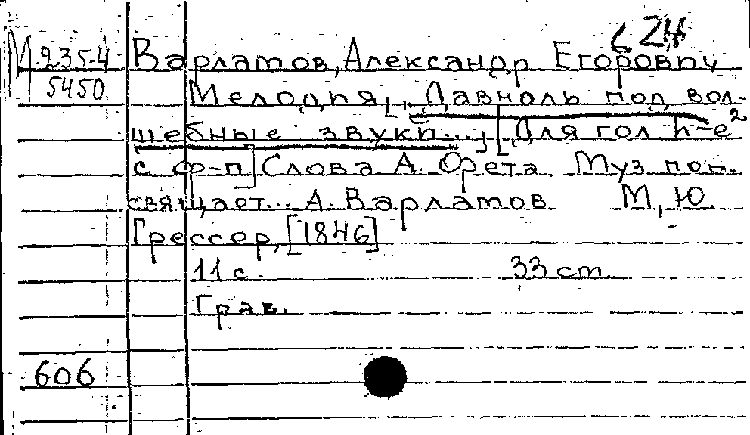 624
М 235-4 Варламов, Александр Егорович
5450 Мелодия [„Давноль под вол-
шебные звуки..."] [Для гол h-e²
с ф-п] Слова А. Фета Муз пос-
вящает... А. Варламов М, Ю
Грессер, [1846]
11 с. 33 cm.
Грав.
606